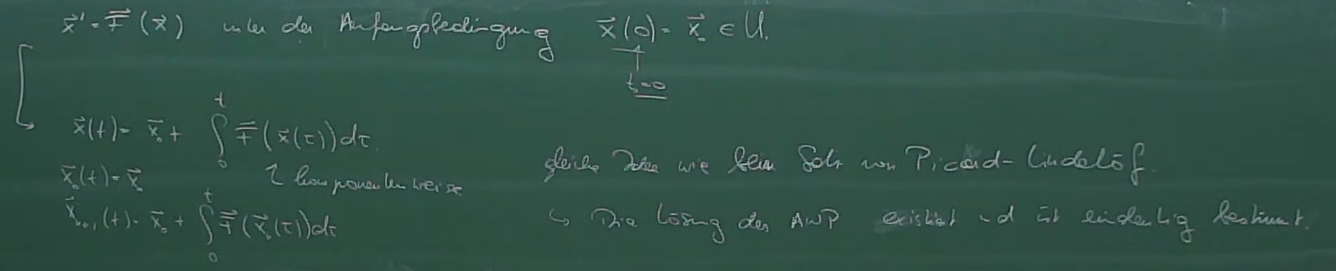 x⃗' = F⃗(x⃗) unter der Anfangsbedingung x⃗(0) = x⃗₀ ∈ U.
t₀=0
x⃗(t) = x⃗₀ + ∫₀ᵗ F⃗(x⃗(τ))dτ.
↑ komponentenweise
x⃗₀(t) = x⃗₀
x⃗ₙ₊₁(t) = x⃗₀ + ∫₀ᵗ F⃗(x⃗ₙ(τ))dτ
gleiche Idee wie beim Satz von Picard-Lindelöf.
↳ Die Lösung des AWP existiert und ist eindeutig bestimmt.